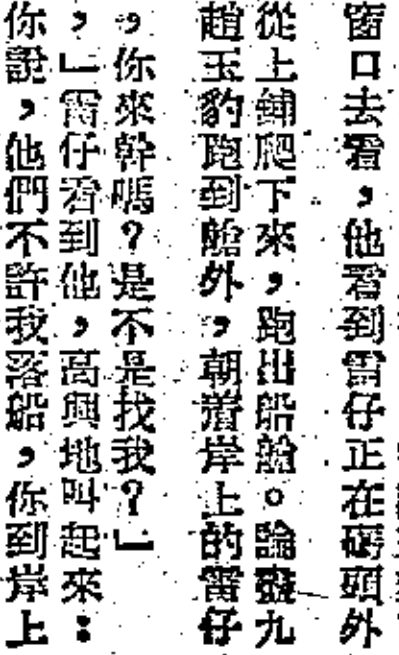 窗口去看，他看到雷仔正在碼頭外
從上鋪爬下來，跑出船艙。九
趙玉豹跑到艙外，朝着岸上的雷仔
，你來幹嗎？是不是找我？」
，」雷仔看到他，高興地叫起來：
你說，他們不許我落船，你到岸上